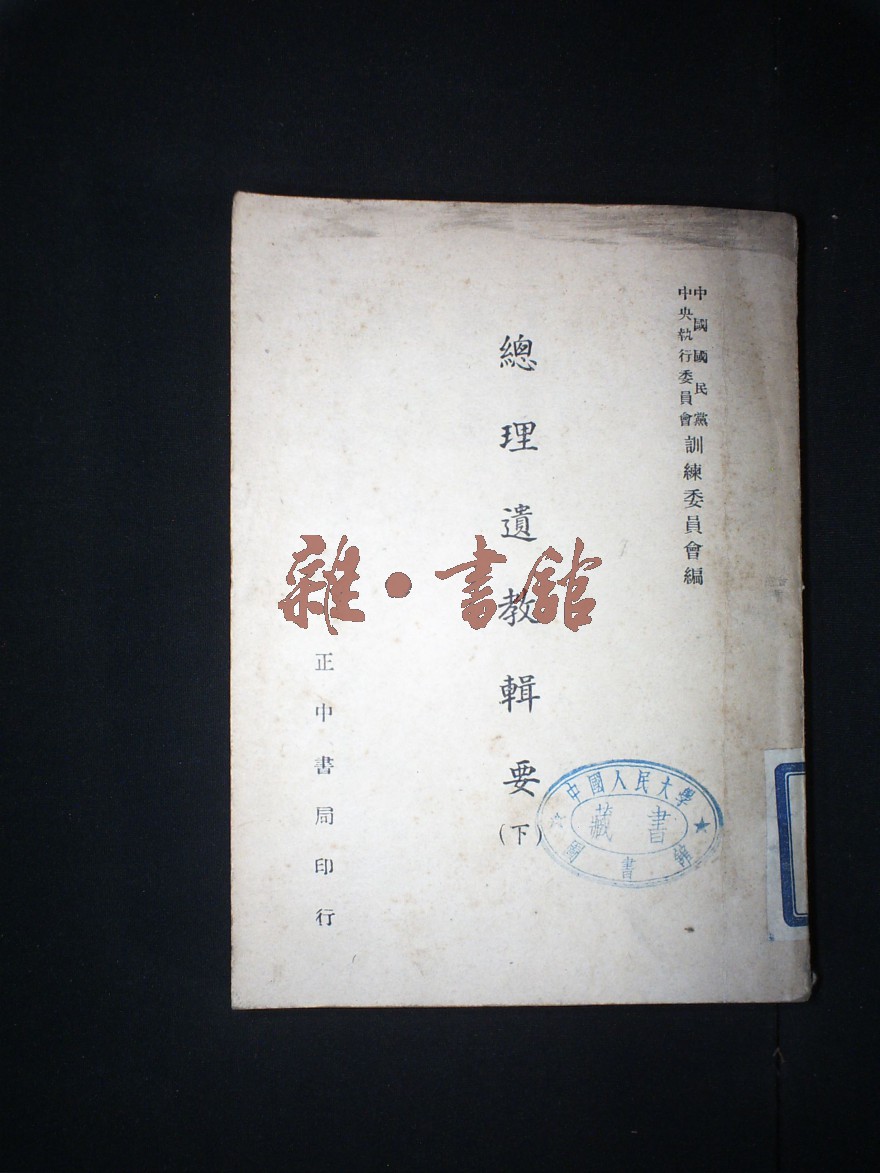 中國國民黨
中央執行委員會
訓練委員會編
總理遺教輯要(下)
正中書局印行
雜·書館
中國人民大學
圖書館
藏書